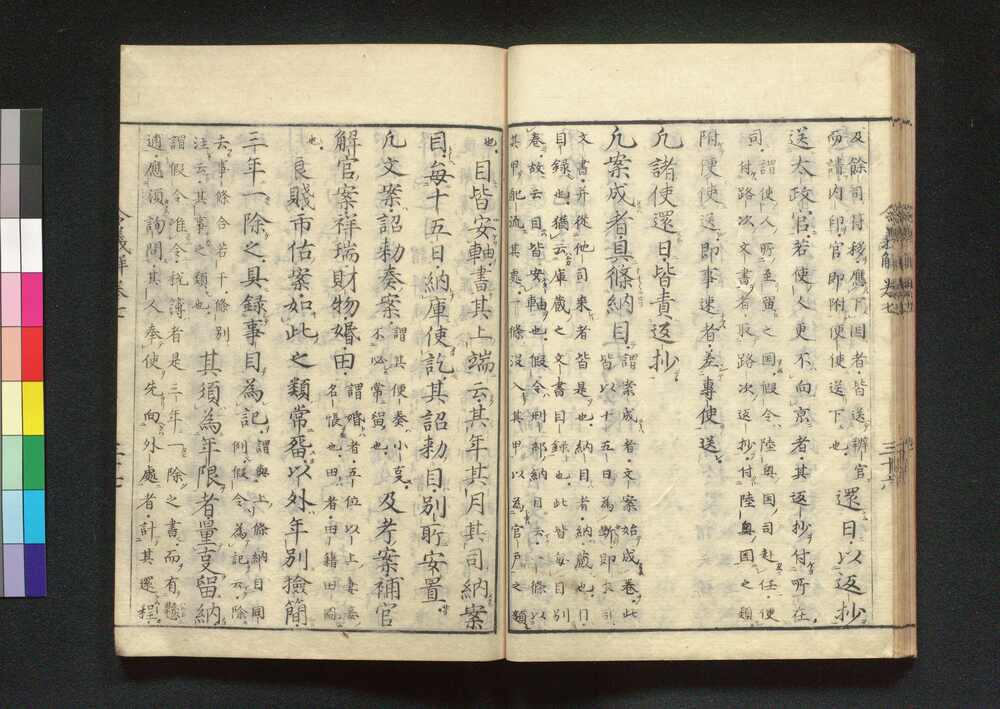 及餘司符移。應下国者皆送辨官
而請内印官即附便使送下也。
還日以返抄
送太政官。若使人更不向京者其返抄付所在
司
謂使人所至留之国假令陸奥国司赴任便
付路次文書者取路次返抄付陸奥国之類
附便使送即事速者差專使送。
凡諸使還日皆責返抄
凡案成者具條納目
謂案成者文案始成卷。此
皆以十五日為斷即
文書并從他司來者皆是也。納目者納蔵也。目
目録也。猶云庫蔵之文書目録也。此皆毎日別
卷。故云目皆安軸也。假令刑部納目云一條以
其甲配流其處一條没入其甲以為官戸之類
也。
目皆安軸。書其上端云其年其月其司納案
目。毎十五日納庫使訖其詔勅目別所安置
凡文案詔勅奏案
謂其便奏小亊
不必常留也。
及考案補官
解官案祥瑞財物婚田
謂婚者五位以上妻妾
名帳也。田者田籍田圖
也。
良賤市估案如此之類常留以外年別撿簡。
三年一除之具録事目為記
謂與上條納目同
例假令為記云除
去事條合若干條別
注云其事之類也
其須為年限者量亊留納
謂假令准令税簿者是三年一除之書而有懸
適應須詢問其人奉使先向外處者計其還程
令義解卷七
三十六
三十七